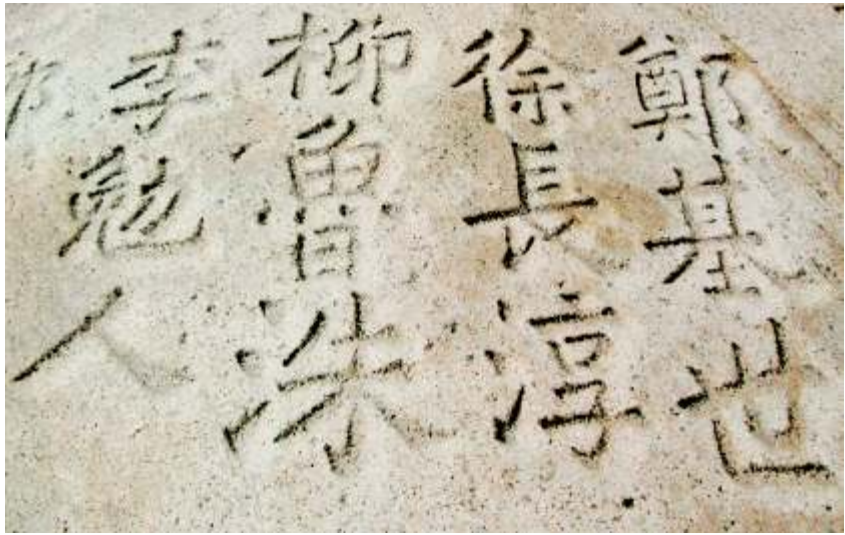 鄭基世
徐長淳
柳魯洙
李勉人